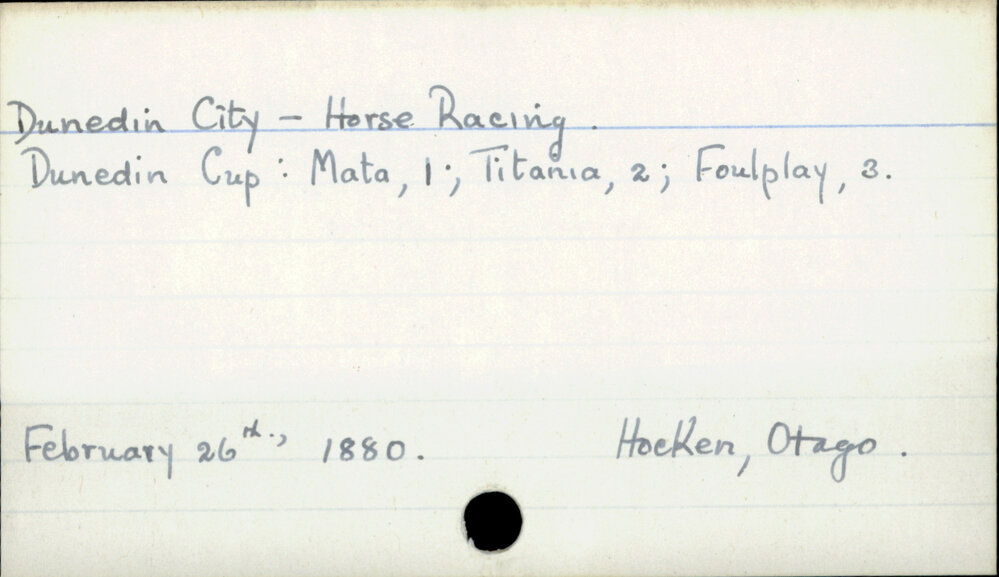 Dunedin City - Horse Racing.
Dunedin Cup: Mata, 1; Titania, 2; Foulplay, 3.
February 26th., 1880. Hocken, Otago.